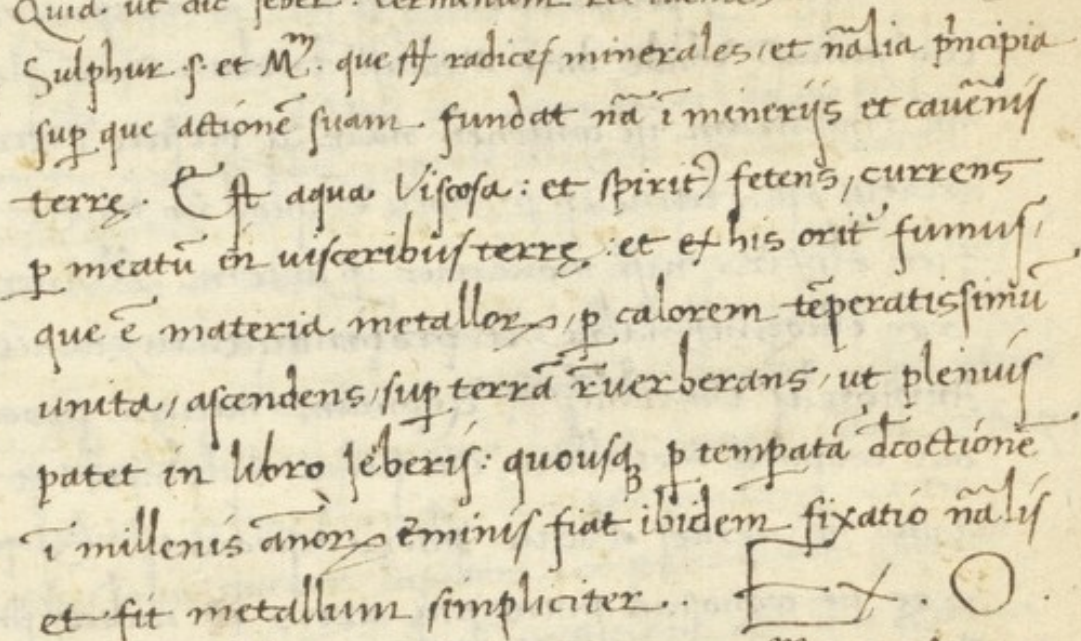 Quia ut dic Jeber.
Sulphur .s. et Mᵐ. que st̃ radices minerales, et nãlia pͥncipia
suꝑ que actionẽ suam fundat nã ĩ mineriis et cavẽnis
terrę. Est aqua viscosa: et spiritꝰ fetens, currens
ꝑ meatũ in visceribus terrę: et ex his oritᷣ fumus,
que ẽ materia metalloꝝ, ꝑ calorem tẽperatissimũ
unita, ascendens, suꝑ terrã r̃verberans, ut plenius
patet in libro Jeberis: quousqꝫ ꝑ temꝑatã dcoctionẽ
ĩ millenis ãnoꝝ t̃minis fiat ibidem fixatio nãlis
et fit metallum simpliciter. Ex. O.